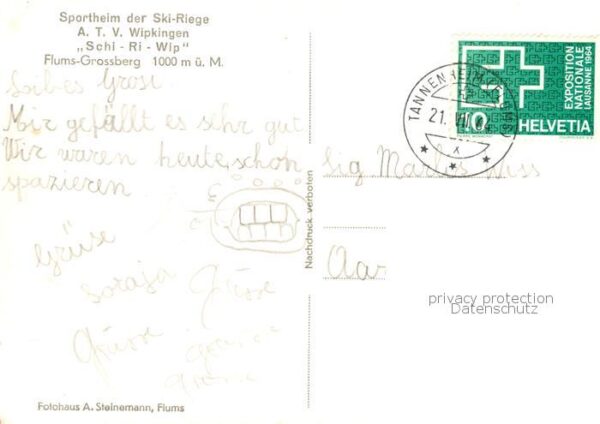 Sportheim der Ski-Riege
A. T. V. Wipkingen
„Schi - Ri - Wip"
Flums-Grossberg 1000 m ü. M.
Mir gefällt es sehr gut
Wir waren heute schon
spazieren
Grüse
Soraja
Grüsse
Grüsse
Nachdruck verboten
Fotohaus A. Steinemann, Flums
TANNENHEIM
21. VII. 64
X
10
HELVETIA
EXPOSITION
NATIONALE
LAUSANNE 1964
Aar
privacy protection
Datenschutz